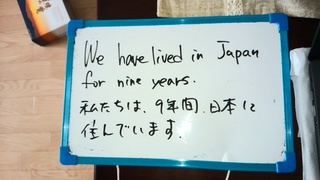 We have lived in Japan
for nine years.
私たちは、9年間、日本に
住んでいます。